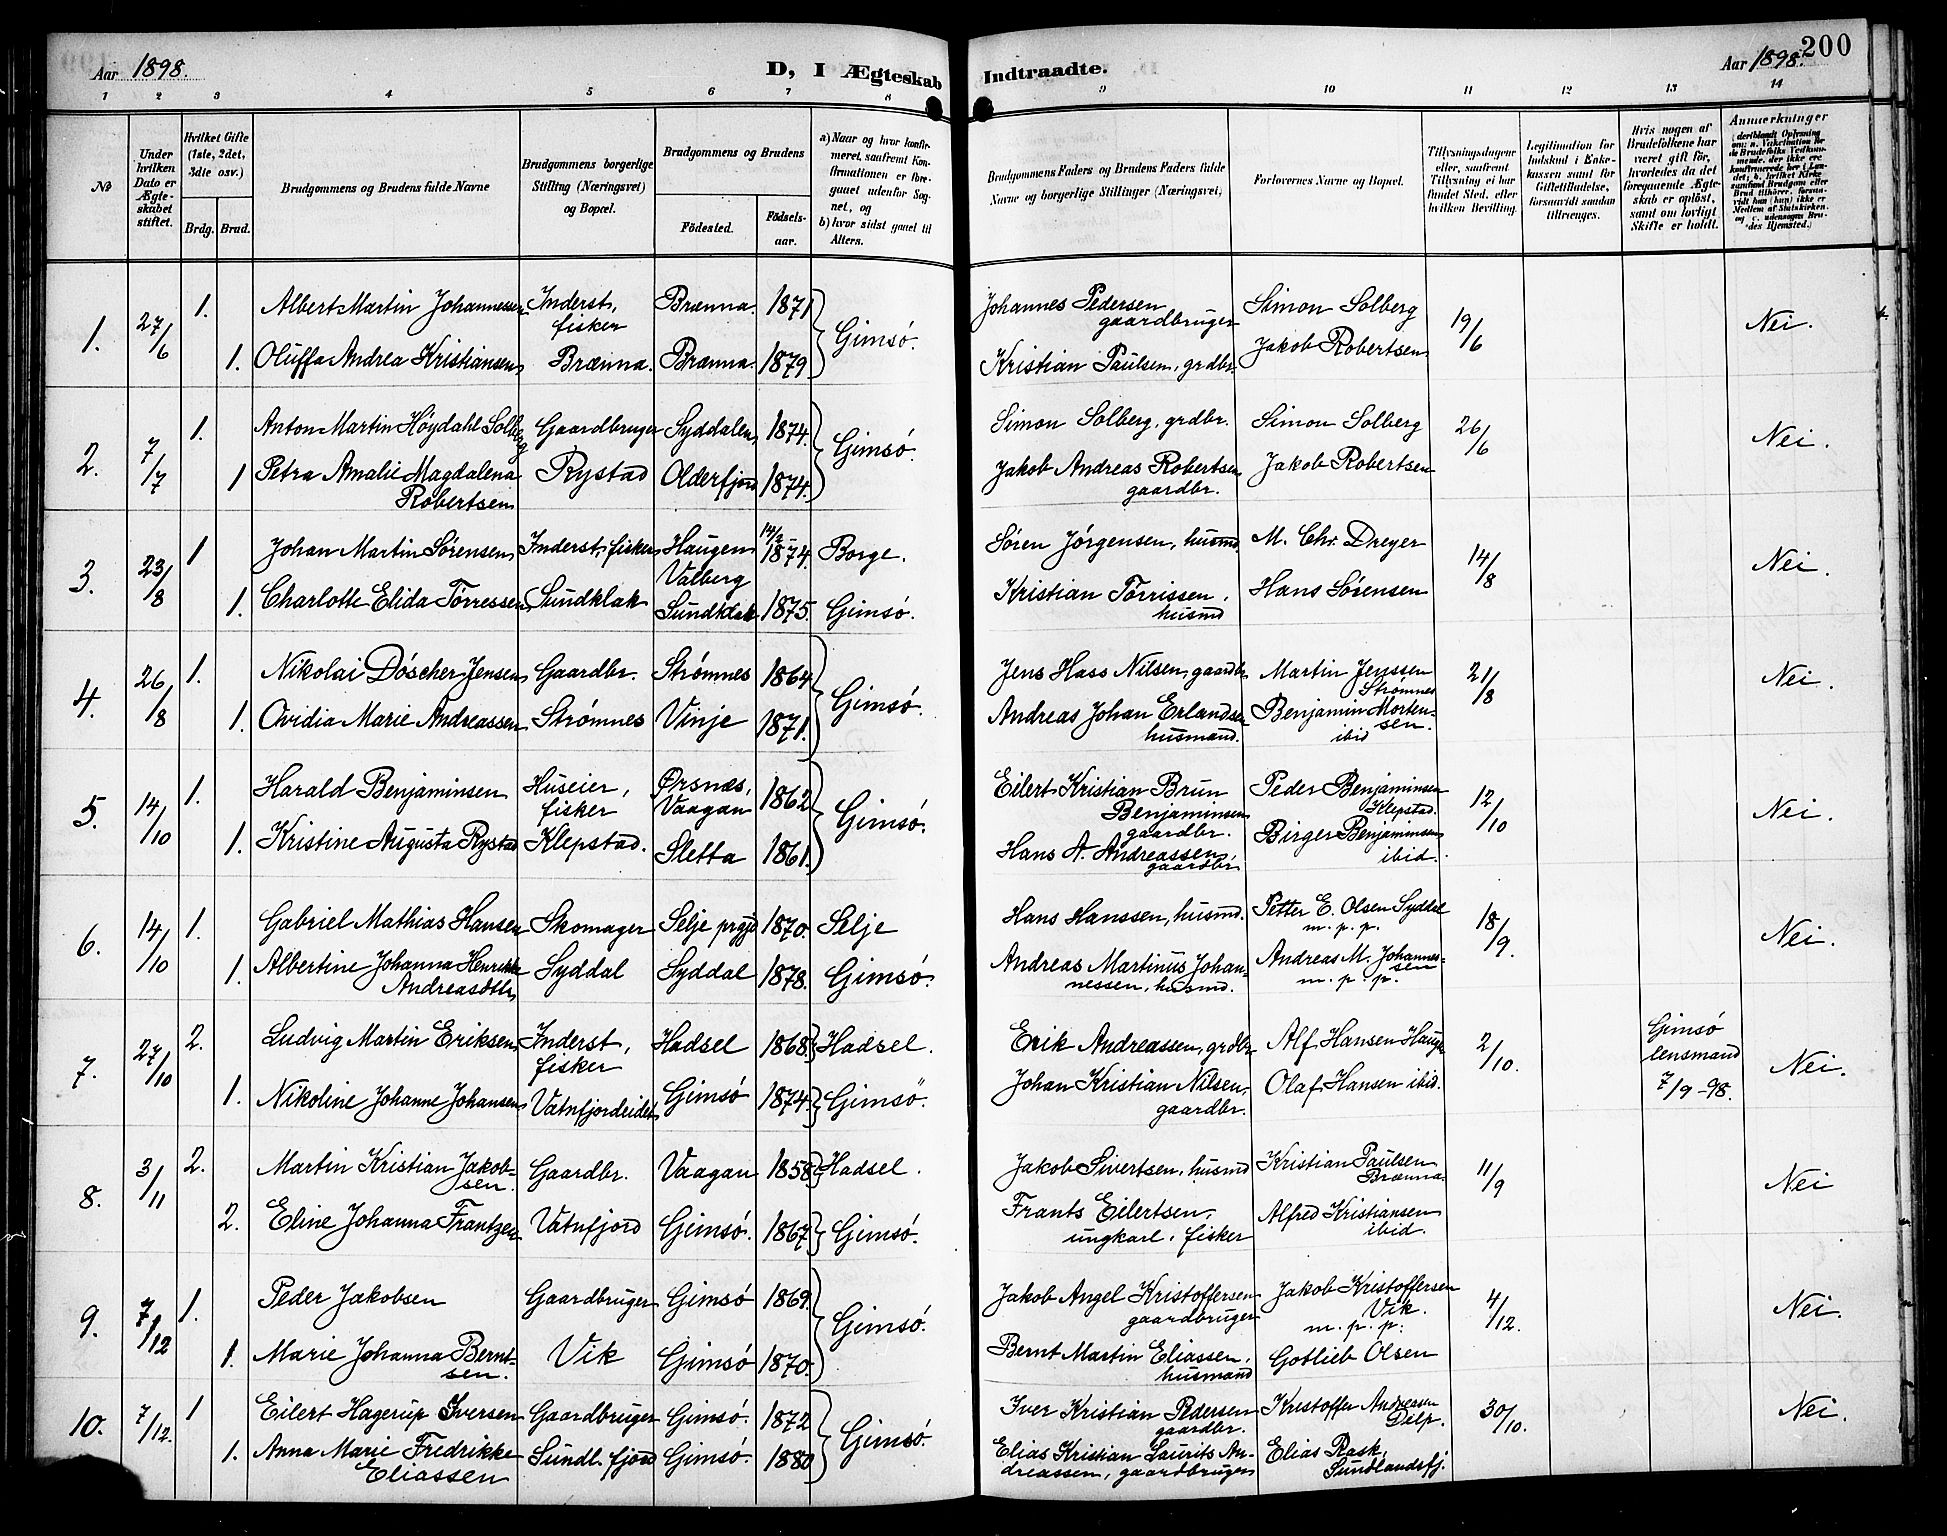 Aar 1898.
D, I Ægteskab Indtraadte.
Aar 1898.
200
1 2 3 4 5 6 7 8 9 10 11 12 13 14
No
Under hvilken Dato er Ægteskabet stiftet.
Hvilket Gifte (1ste, 2det, 3die osv.)
Brdg. Brud.
Brudgommens og Brudens fulde Navne
Brudgommens borgerlige Stilling (Næringsvei) og Bopæl.
Brudgommens og Brudens
Födested.
Födselsaar.
a) Naar og hvor konfirmeret, saafremt Konfirmationen er foregaaet udenfor Sognet, og
b) hvor sidst gaaet til Alters.
Brudgommens Faders og Brudens Faders fulde Navne og borgerlige Stillinger (Næringsvei)
Forlovernes Navne og Bopæl.
Tillysningsdagene eller, saafremt Tillysning ei har fundet Sted, efter hvilken Bevilling.
Legitimation for Indskud i Enkekassen samt for Giftetilladelse, forsaavidt saadan tiltrænges.
Hvis nogen af Brudefolkene har været gift før, hvorledes da det foregaaende Ægteskab er opløst, samt om lovligt Skifte er holdt.
Anmærkninger
1. 27/6 1. Albert Martin Johannessen Inderst, fisker Brænna. 1871 Gimsö. Johannes Pedersen gaardbruger Simon Solberg 19/6 Nei.
1. Oluffa Andrea Kristiansen Brænna. Brænna. 1879 Kristian Paulsen, grdbr. Jakob Robertsen
2. 7/7 1. Anton Martin Høydahl Solberg Gaardbruger Syddalen 1874. Gimsö. Simon Solberg, grdbr. Simon Solberg 26/6 Nei.
1 Petra Amalie Magdalena Robertsen Rystad Olderfjord 1874. Jakob Andreas Robertsen gaardbr. Jakob Robertsen
3. 23/8 1 Johan Martin Sørensen Inderst, fisker Haugen Valberg 1874. Borge. Søren Jørgensen, husmd. M. Chr. Dreyer 14/8 Nei.
1. Charlotte Elida Tørressen Sundklak Sundklak 1875. Gimsö. Kristian Tørrissen, husmd Hans Sørensen
4. 26/8 1. Nikolai Döscher Jensen Gaardbr. Strømnes 1864 Gimsö. Jens Hass Nilsen, gaardbr Martin Jenssen Strømnes 21/8 Nei.
1. Ovidia Marie Andreassen Strømnes Vinje 1871. Andreas Johan Erlandsen husmand. Benjamin Mortensen. ibid
5. 14/10 1. Harald Benjaminsen Huseier, fisker Ørsnæs, Vaagan 1862 Gimsö. Eilert Kristian Brun Benjaminsen gaardbr. Peder Benjaminsen Klepstad. 12/10 Nei.
1. Kristine Augusta Rystad Klepstad. Sletta 1861. Hans A. Andreassen gaardbr Birger Benjaminsen ibid.
6. 14/10 1. Gabriel Mathias Hansen Skomager Selje prgjd 1870. Selje Hans Hanssen, husmd. Petter E. Olsen Syddal m. p. p. 18/9. Nei.
1. Albertine Johanna Henrikke Andreasdtr Syddal Syddal 1878. Gimsö. Andreas Martinus Johannessen, husmd. Andreas M. Johannessen m. p. p.
7. 27/10 2. Ludvig Martin Eriksen Inderst, fisker Hadsel 1868 Hadsel. Erik Andreassen, grdbr Alf Hansen Haugen 2/10. Gimsö lensmand 7/9-98. Nei.
1. Nikoline Johanne Johansen Vatnfjordeidet Gimsö 1874. Gimsö. Johan Kristian Nilsen, gaardbr. Olaf Hansen ibid.
8. 3/11 2. Martin Kristian Jakobsen. Gaardbr. Vaagan 1858 Hadsel. Jakob Sivertsen, husmd Kristian Paulsen Brænna. 11/9 Nei
2. Eline Johanna Frantzen Vatnfjord Gimsö. 1867 Gimsö. Frants Eilertsen, ungkarl, fisker Alfred Kristiansen ibid.
9. 7/12 1. Peder Jakobsen Gaardbruger Gimsö 1869. Gimsö. Jakob Angel Kristoffersen gaardbruger Jakob Kristoffersen Vik. m. p. p. 4/12. Nei.
1. Marie Johanna Berntsen. Vik Gimsö 1870. Bernt Martin Eliassen, husmand Gotlieb Olsen
10. 7/12. 1 Eilert Hagerup Iversen Gaardbruger Gimsö. 1872 Gimsö. Iver Kristian Pedersen gaardbr. Kristoffer Andressen Delp. 30/10. Nei.
1. Anna Marie Fredrikke Eliassen Sundl. fjord Gimsö. 1880 Elias Kristian Laurits Andreassen, gaardbruger Elias Rask, Sundlandsfj.